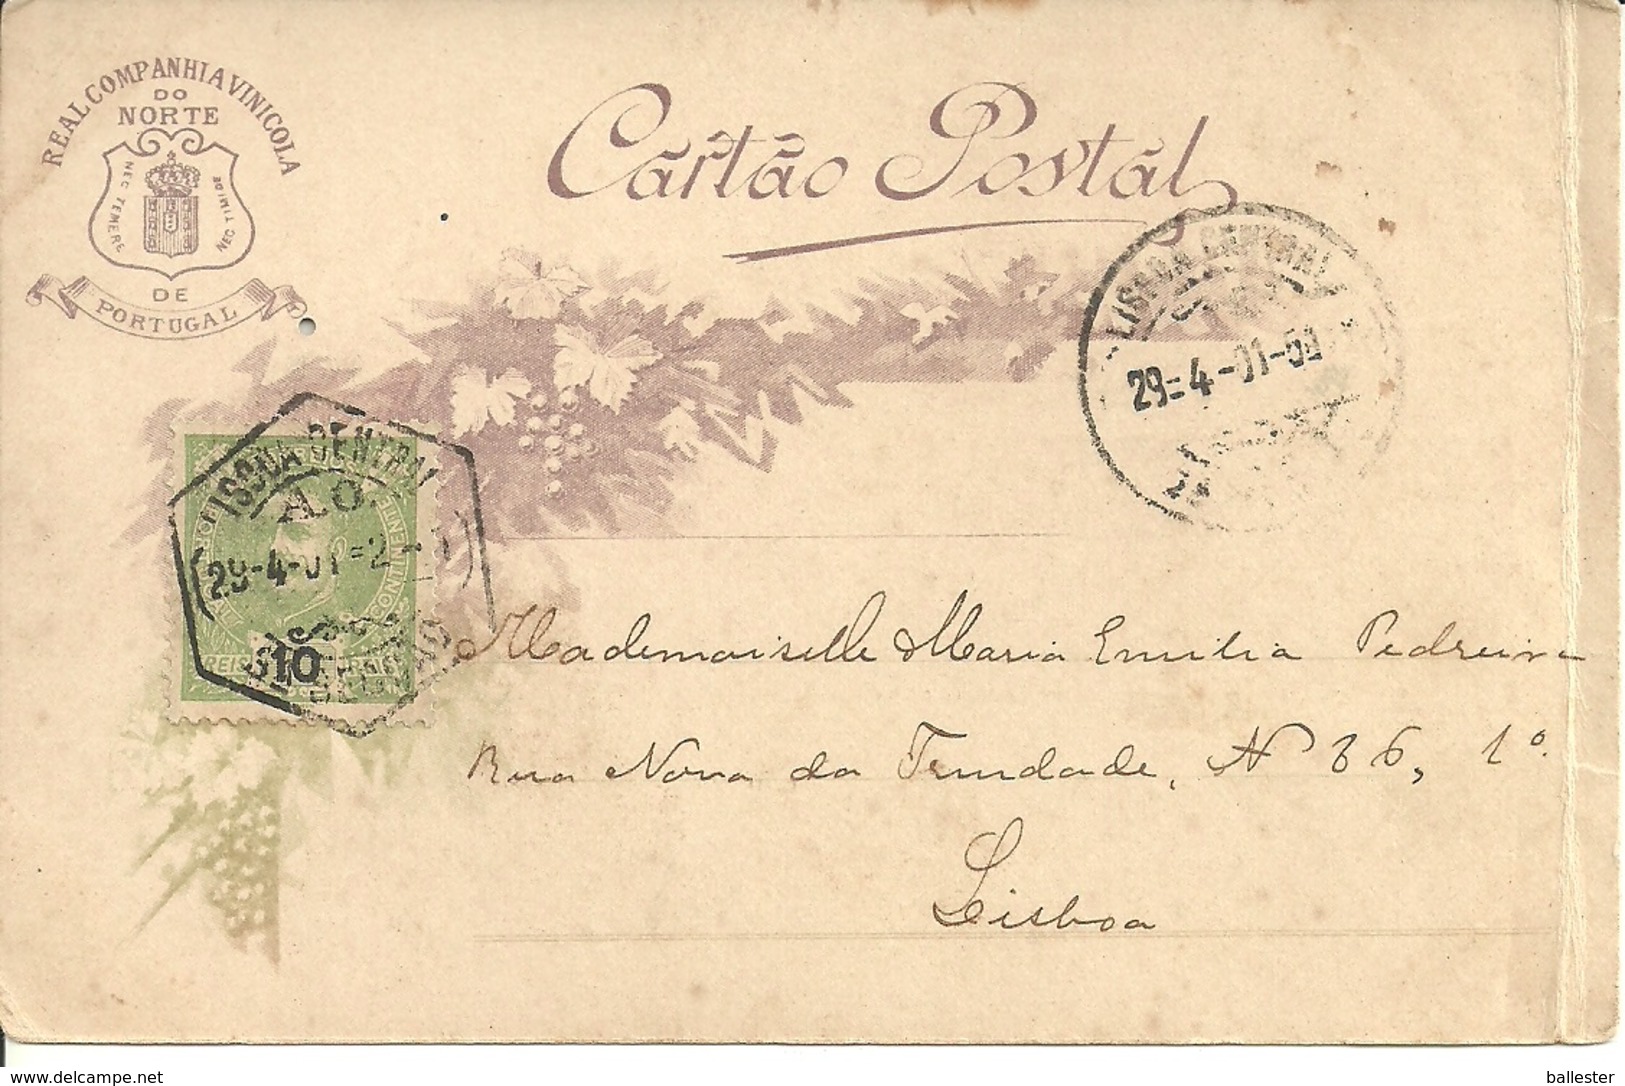 REAL COMPANHIA VINICOLA
DO
NORTE
NEC TEMERE
NEC TIMIDE
DE
PORTUGAL
Cartão Postal
LISBOA CENTRAL
29-4-01
LISBOA CENTRAL
29-4-01=2
CONTINENTE
REIS
10
Mademoiselle Maria Emilia Pedreira
Rua Nova da Trindade, Nº 36, 1º.
Lisboa
www.delcampe.net
ballester